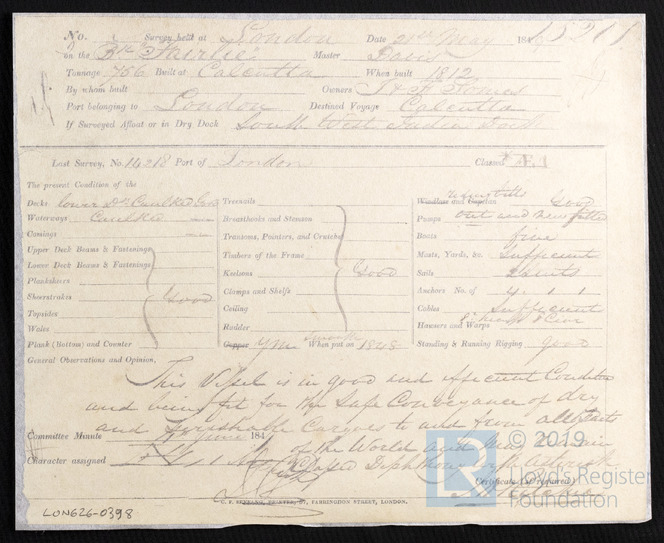 No. Survey held at London Date 21st May 184
on the Bk "Fairlie" Master Davis
Tonnage 756 Built at Calcutta When built 1812
By whom built Owners
Port belonging to London Destined Voyage Calcutta
If Surveyed Afloat or in Dry Dock South West India Dock
Last Survey, No. 14218 Port of London Classed
The present Condition of the
Decks lower Dk. Caulked Good
Waterways Caulked
Comings
Upper Deck Beams & Fastenings
Lower Deck Beams & Fastenings
Planksheers
Sheerstrakes Good
Topsides
Wales
Plank (Bottom) and Counter
Treenails
Breasthooks and Stemson
Transoms, Pointers, and Crutches
Timbers of the Frame
Keelsons Good
Clamps and Shelfs
Ceiling
Rudder
Copper YM When put on 1848
Windlass and Capstan Good
Pumps out and new fitted
Boats five
Masts, Yards, &c. Sufficient
Sails 2 suits
Anchors No. of 4. 1. 1
Cables Sufficient
Hawsers and Warps
Standing & Running Rigging Good
General Observations and Opinion,
This Vessel is in good and efficient Condition
and being fit for the Safe Conveyance of dry
and Perishable Cargoes to and from all parts
of the World
Committee Minute June 184
Character assigned
Certificate (if required)
C. F. SEYFANG, PRINTER, FARRINGDON STREET, LONDON.
LON626-0398
© 2019
LR Lloyd's Register
Foundation